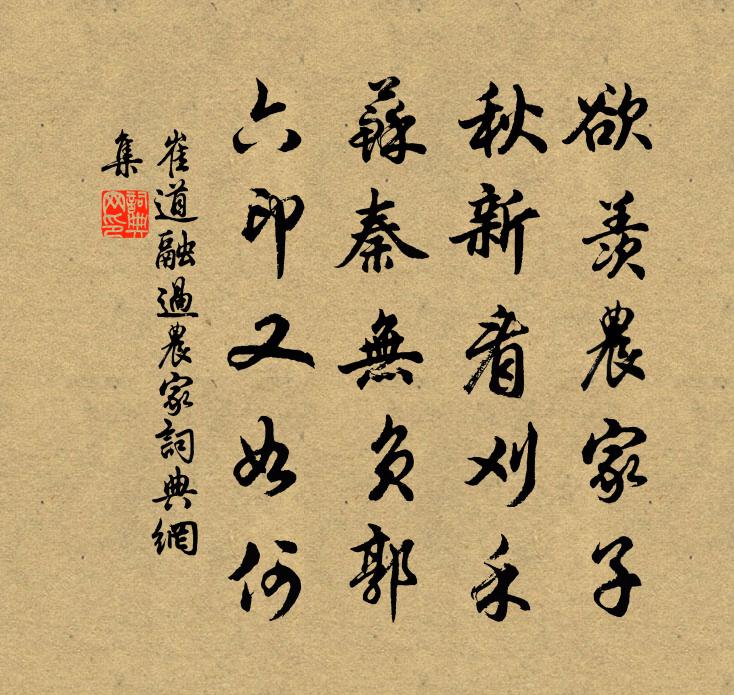 欲羨農家子
秋新看刈禾
蘇秦無負郭
六印又如何
崔道融過農家詞典網
集
詞典
网印